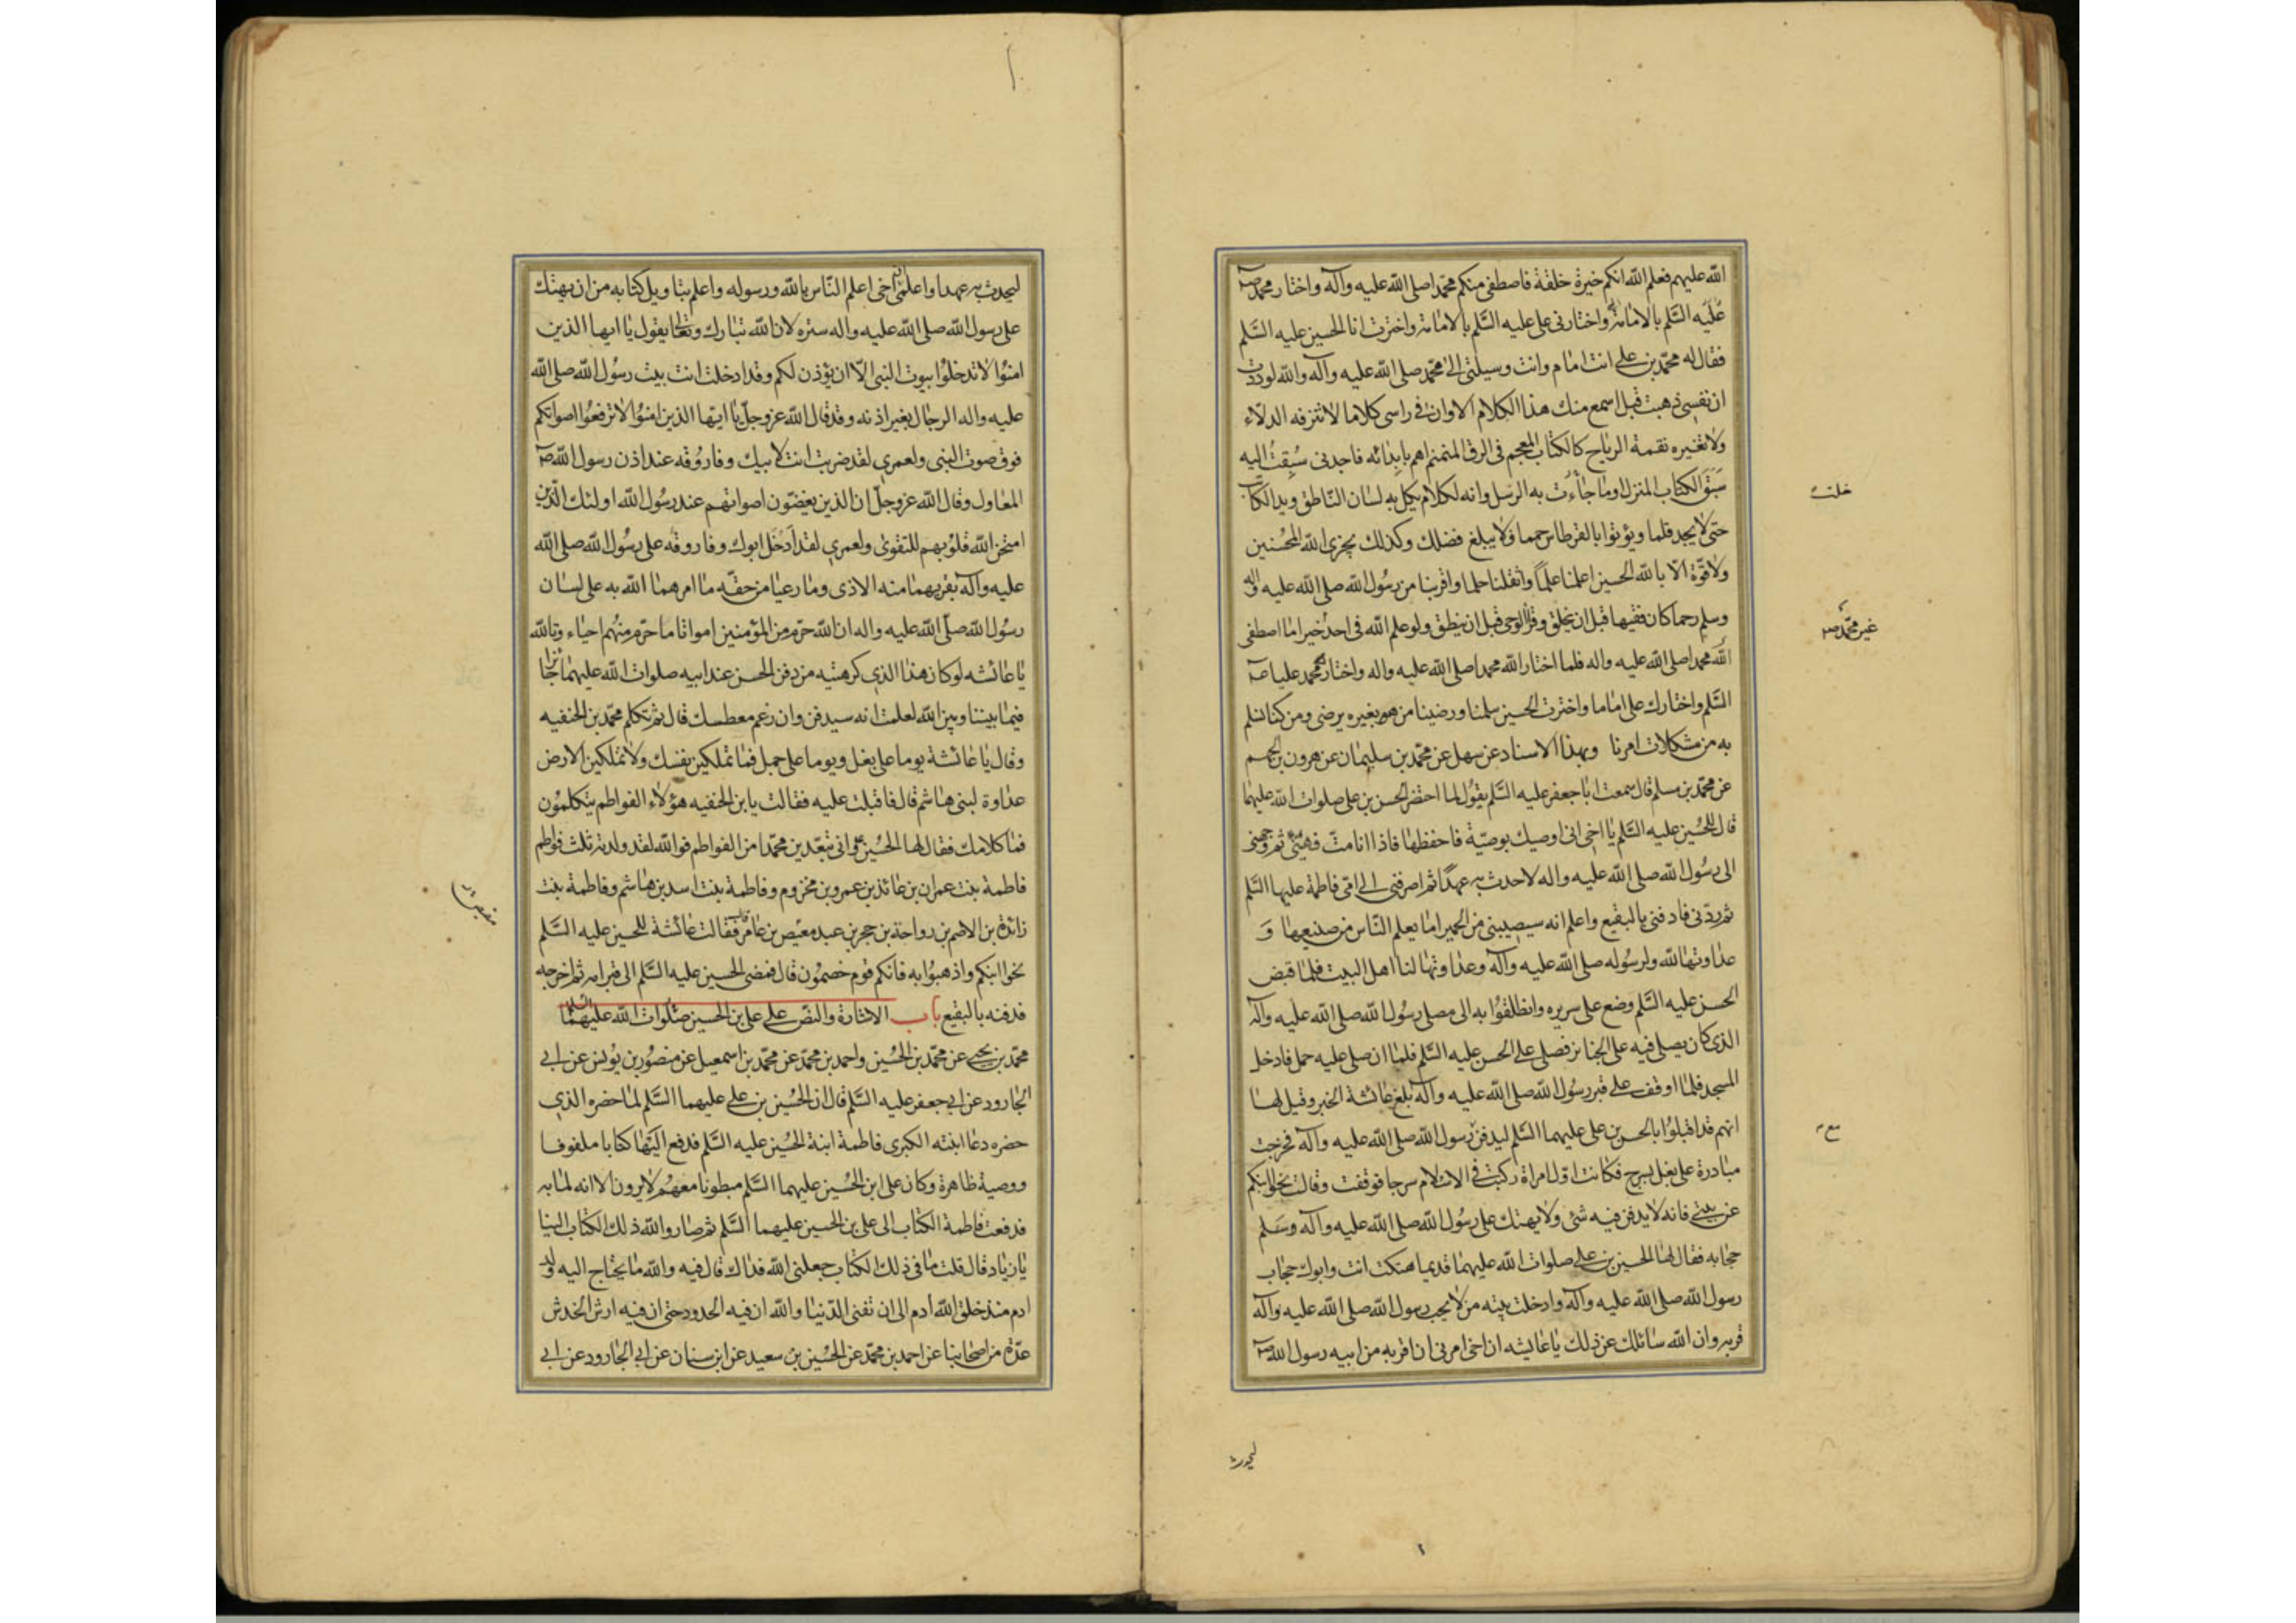 الله عليهم فعلم الله انكم خيرة خلقة فاصطفى منكم محمدا صلى الله عليه وآله واختار محمد
عليه السلم بالامامة واختارنى على عليه السلم بالامامة واخترت انا الحسين عليه السلم
فقال له محمد بن على انت امام وانت وسيلتى الى محمد صلى الله عليه وآله والله لوددت
ان نفسى ذهبت قبل اسمع منك هذا الكلام الا وان فى راسى كلاما لا تنزفه الدلاء
ولا تغيره نقمة الرياح كالكتاب المعجم فى الرق المنمنم اهم بابدائه فاجدنى سبقت اليه
سبق الكتاب المنزل او ما جاءت به الرسل وانه لكلام يكل به لسان الناطق ويد الكاتب
حتى لا يجد قلما ويؤتوا بالقرطاس حمما ولا يبلغ فضلك وكذلك يجزى الله المحسنين
ولا قوة الا بالله الحسين اعلمنا علما واثقلنا حلما واقربنا من رسول الله صلى الله عليه وآله
وسلم رحما كان فقيها قبل ان يخلق وقرأ الوحى قبل ان ينطق ولو علم الله فى احد خير اما اصطفى
الله محمدا صلى الله عليه واله فلما اختار الله محمدا صلى الله عليه واله واختار محمد عليا
السلم واختارك على اماما واخترت الحسين سلمنا ورضينا من هو بغيره يرضى ومن كنا نسلم
به من مشكلات امرنا وبهذا الاسناد عن سهل عن محمد بن سليمان عن هرون بن الجهم
عن محمد بن مسلم قال سمعت ابا جعفر عليه السلم يقول لما احتضر الحسن بن على صلوات الله عليهما
قال للحسين عليه السلم يا اخى انى اوصيك بوصية فاحفظها فاذا انا مت فهيئنى ثم وجهنى
الى رسول الله صلى الله عليه واله لاحدث به عهدا ثم اصرفنى الى امى فاطمة عليها السلم
ثم ردنى فادفنى بالبقيع واعلم انه سيصيبنى من الحميرا ما يعلم الناس من صنيعها و
عداوتها لله ولرسوله صلى الله عليه وآله وعداوتها لنا اهل البيت فلما قبض
الحسن عليه السلم وضع على سريره وانطلقوا به الى مصلى رسول الله صلى الله عليه وآله
الذى كان يصلى فيه على الجنائز فصلى على الحسن عليه السلم فلما ان صلى عليه حمل فادخل
المسجد فلما اوقف على قبر رسول الله صلى الله عليه وآله بلغ عائشة الخبر وقيل لها
انهم قد اقبلوا بالحسن بن على عليهما السلم ليدفن رسول الله صلى الله عليه وآله فخرجت
مبادرة على بغل بسرج فكانت اول امراة ركبت فى الاسلام سرجا فوقفت وقالت نحوا ابنكم
عن بيتى فانه لا يدفن فيه شئ ولا يهتك على رسول الله صلى الله عليه وآله وسلم
حجابه فقال لها الحسين بن على صلوات الله عليهما قديما هتكت انت وابوك حجاب
رسول الله صلى الله عليه وآله وادخلت بيته من لا يحب رسول الله صلى الله عليه وآله
قربه وان الله سائلك عن ذلك يا عايشه ان اخى امرنى ان اقربه من ابيه رسول الله
غير محمد
ليحدث
ليحدث به عهدا واعلمى ان اخى اعلم الناس بالله ورسوله واعلم بتاويل كتابه من ان يهتك
على رسول الله صلى الله عليه واله ستره لان الله تبارك وتعالى يقول يا ايها الذين
امنوا لا تدخلوا بيوت النبى الا ان يؤذن لكم وقد ادخلت انت بيت رسول الله صلى الله
عليه واله الرجال بغير اذنه وقد قال الله عز وجل يا ايها الذين امنوا لا ترفعوا اصواتكم
فوق صوت النبى ولعمرى لقد ضربت انت لابيك وفاروقه عند اذن رسول الله
المعاول وقال الله عز وجل ان الذين يغضون اصواتهم عند رسول الله اولئك الذين
امتحن الله قلوبهم للتقوى ولعمرى لقد ادخل ابوك وفاروقه على رسول الله صلى الله
عليه وآله بقربهما منه الاذى وما رعيا من حقه ما امرهما الله به على لسان
رسول الله صلى الله عليه واله ان الله حرم من المؤمنين امواتا ما حرم منهم احياء وتالله
يا عائشه لو كان هذا الذى كرهتيه من دفن الحسن عند ابيه صلوات الله عليهما جائزا
فيما بيننا وبين الله لعلمت انه سيدفن وان رغم معطسك قال ثم تكلم محمد بن الحنفيه
وقال يا عائشة يوما على بغل ويوما على جمل فما تملكين نفسك ولا تملكين الارض
عداوة لبنى هاشم قال فاقبلت عليه فقالت يا بن الحنفيه هؤلاء الفواطم يتكلمون
فما كلامك فقال لها الحسين وانى تبعدين محمدا من الفواطم فوالله لقد ولدته ثلث فواطم
فاطمة بنت عمران بن عائذ بن عمرو بن مخزوم وفاطمة بنت اسد بن هاشم وفاطمة بنت
زائدة بن الاصم بن رواحة بن حجر بن عبد معيص بن عامر فقالت عائشة للحسين عليه السلم
نحوا ابنكم واذهبوا به فانكم قوم خصمون قال فمضى الحسين عليه السلم الى قبر امه ثم اخرجه
فدفنه بالبقيع باب الاشارة والنص على على بن الحسين صلوات الله عليهما
محمد بن يحيى عن محمد بن الحسين واحمد بن محمد عن محمد بن اسمعيل عن منصور بن يونس عن ابى
الجارود عن ابى جعفر عليه السلم قال ان الحسين بن على عليهما السلم لما حضره الذى
حضره دعا ابنته الكبرى فاطمة ابنة الحسين عليه السلم فدفع اليها كتابا ملفوفا
ووصية ظاهرة وكان على ابن الحسين عليهما السلم مبطونا معهم لا يرون الا انه لما به
فدفعت فاطمة الكتاب الى على بن الحسين عليهما السلم ثم صار والله ذلك الكتاب الينا
يا زياد قال قلت ما فى ذلك الكتاب جعلنى الله فداك قال فيه والله ما يحتاج اليه ولد
ادم منذ خلق الله ادم الى ان تفنى الدنيا والله ان فيه الحدود حتى ان فيه ارش الخدش
عدة من اصحابنا عن احمد بن محمد عن الحسين بن سعيد عن ابن سنان عن ابى الجارود عن ابى